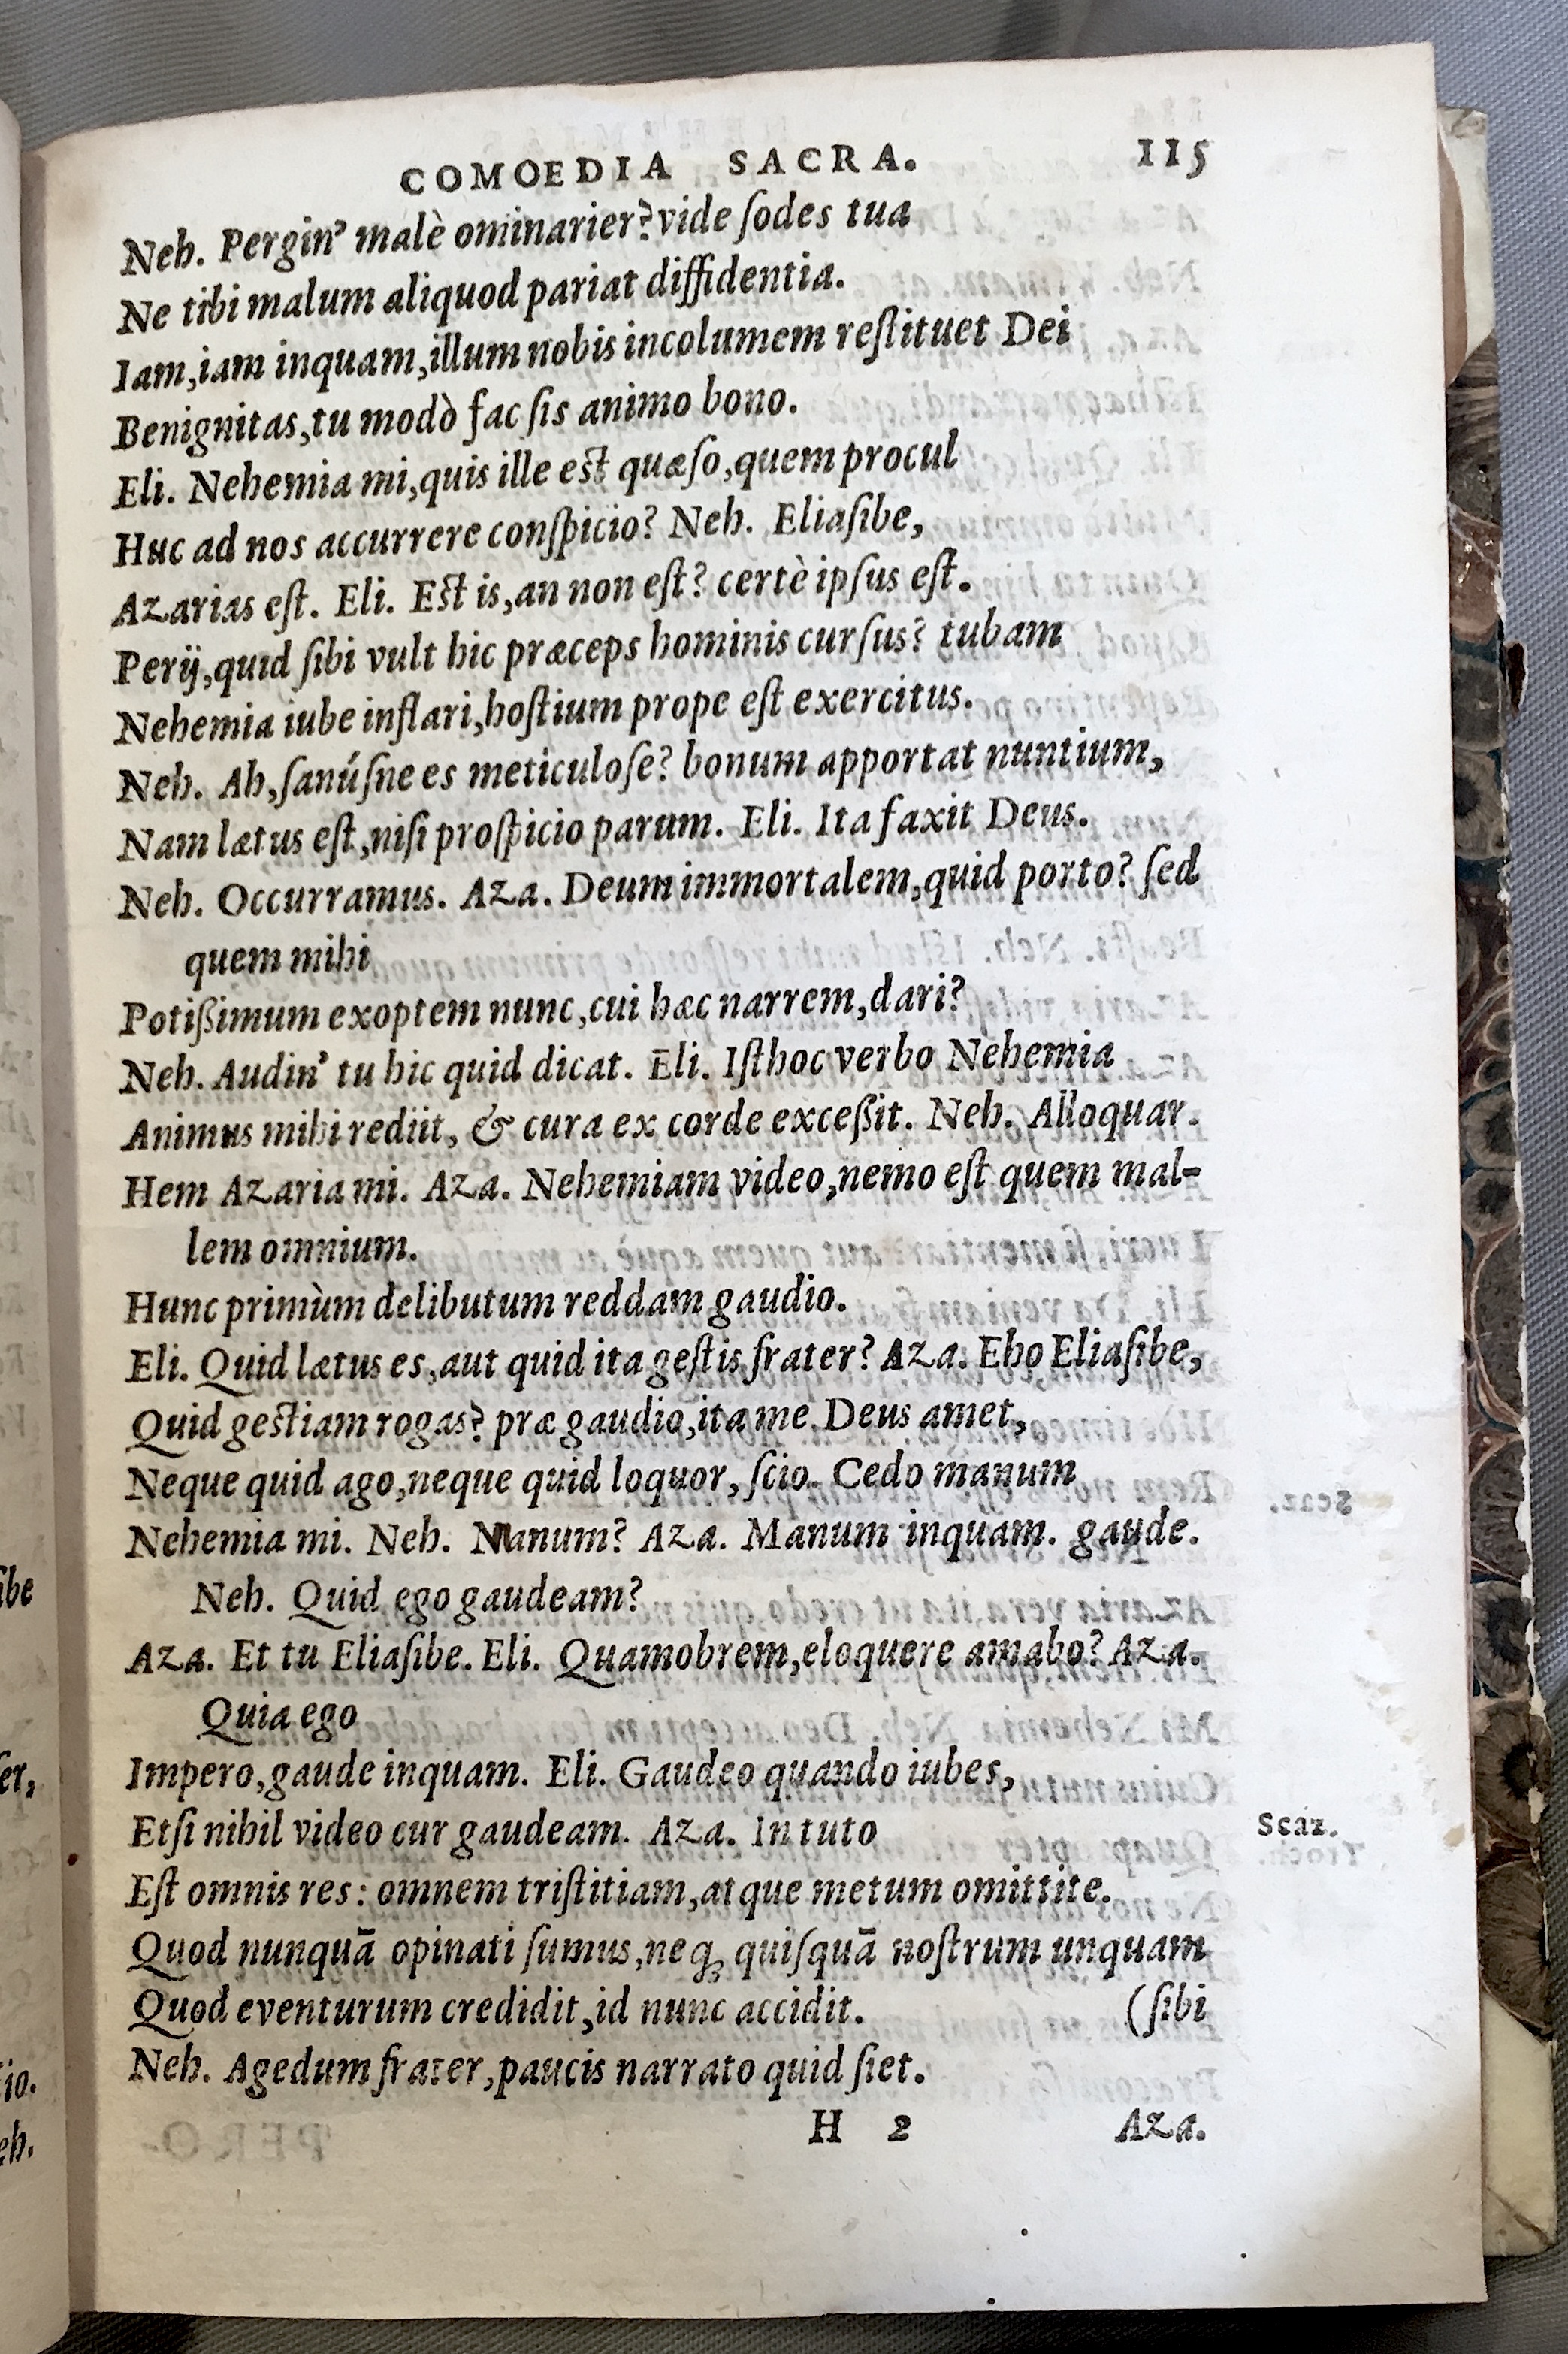 COMOEDIA SACRA. 115
Neh. Pergin' malè ominarier? vide ſodes tua
Ne tibi malum aliquod pariat diffidentia.
Iam, iam inquam, illum nobis incolumem reſtituet Dei
Benignitas, tu modò fac ſis animo bono.
Eli. Nehemia mi, quis ille est quæſo, quem procul
Huc ad nos accurrere conſpicio? Neh. Eliaſibe,
Azarias eſt. Eli. Est is, an non eſt? certè ipſus eſt.
Perij, quid ſibi vult hic præceps hominis curſus? tubam
Nehemia iube inflari, hoſtium prope eſt exercitus.
Neh. Ah, ſanúſne es meticuloſe? bonum apportat nuntium,
Nam lætus eſt, niſi proſpicio parum. Eli. Ita faxit Deus.
Neh. Occurramus. Aza. Deum immortalem, quid porto? ſed
quem mihi
Potiſsimum exoptem nunc, cui hæc narrem, dari?
Neh. Audin' tu hic quid dicat. Eli. Iſthoc verbo Nehemia
Animus mihi rediit, & cura ex corde exceſsit. Neh. Alloquar.
Hem Azaria mi. Aza. Nehemiam video, nemo eſt quem mal-
lem omnium.
Hunc primùm delibutum reddam gaudio.
Eli. Quid lætus es, aut quid ita geſtis frater? Aza. Eho Eliaſibe,
Quid gestiam rogas? præ gaudio, ita me Deus amet,
Neque quid ago, neque quid loquor, ſcio. Cedo manum
Nehemia mi. Neh. Manum? Aza. Manum inquam. gaude.
Neh. Quid ego gaudeam?
Aza. Et tu Eliaſibe. Eli. Quamobrem, eloquere amabo? Aza.
Quia ego
Impero, gaude inquam. Eli. Gaudeo quando iubes,
Etſi nihil video cur gaudeam. Aza. In tuto Scaz.
Eſt omnis res: omnem triſtitiam, atque metum omittite.
Quod nunquā opinati ſumus, neq; quiſquā noſtrum unquam
Quod eventurum credidit, id nunc accidit. (ſibi
Neh. Agedum frater, paucis narrato quid ſiet.
H 2 Aza.